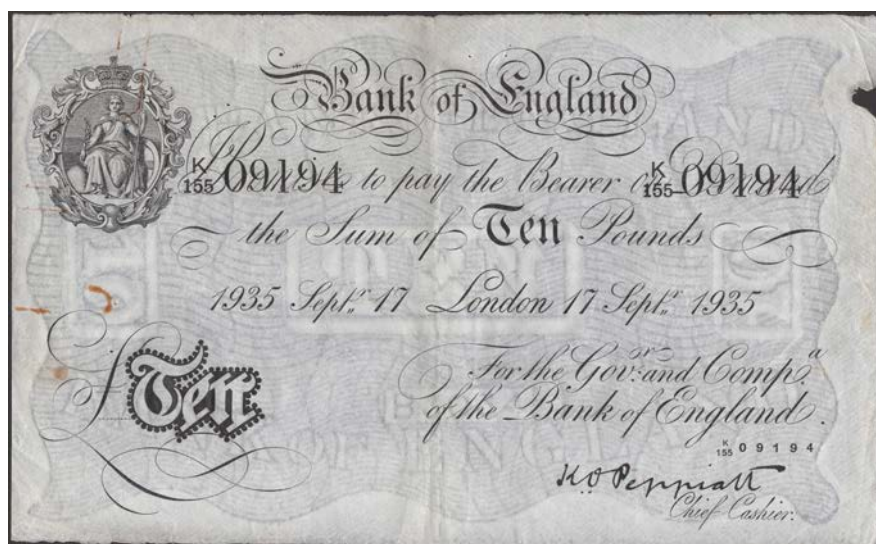 Bank of England
K/155 09194 Promise to pay the Bearer on Demand K/155 09194
the Sum of Ten Pounds
1935 Septr. 17 London 17 Septr. 1935
For the Govr. and Compa.
of the Bank of England.
£Ten
K/155 09194
K O Peppiatt
Chief Cashier.